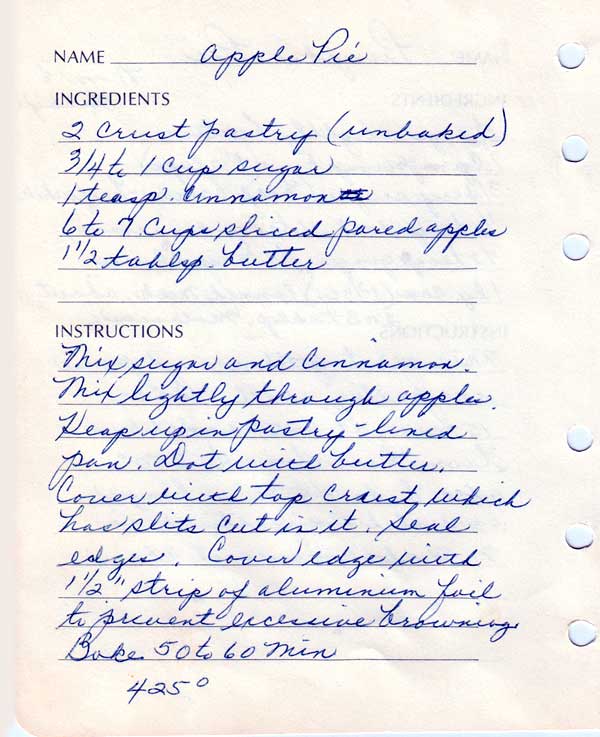 NAME Apple Pie
INGREDIENTS
2 Crust pastry (unbaked)
3/4 to 1 cup sugar
1 teasp. Cinnamon
6 to 7 Cups sliced pared apples
1 1/2 tablsp. butter
INSTRUCTIONS
Mix sugar and Cinnamon.
Mix lightly through apples.
Heap up in pastry-lined
pan. Dot with butter.
Cover with top Crust, which
has slits cut in it. Seal
edges. Cover edge with
1 1/2" strip of aluminium foil
to prevent excessive browning.
Bake 50 to 60 Min
425°